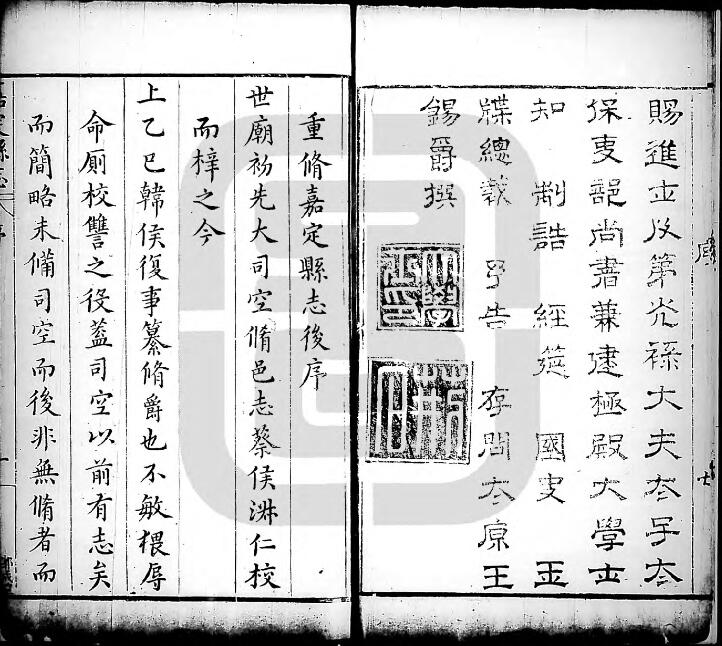 賜進士及第光祿大夫太子太
保吏部尚書兼建極殿大學士
知 制誥 經筵 國史 玉
牒總裁 予告 存問太原王
錫爵撰
重脩嘉定縣志後序
世廟初先大司空脩邑志蔡侯 仁校
而梓之今
上乙巳韓侯復事纂脩爵也不敏猥辱
命厠校讐之役葢司空以前有志矣
而簡略未備司空而後非無脩者而